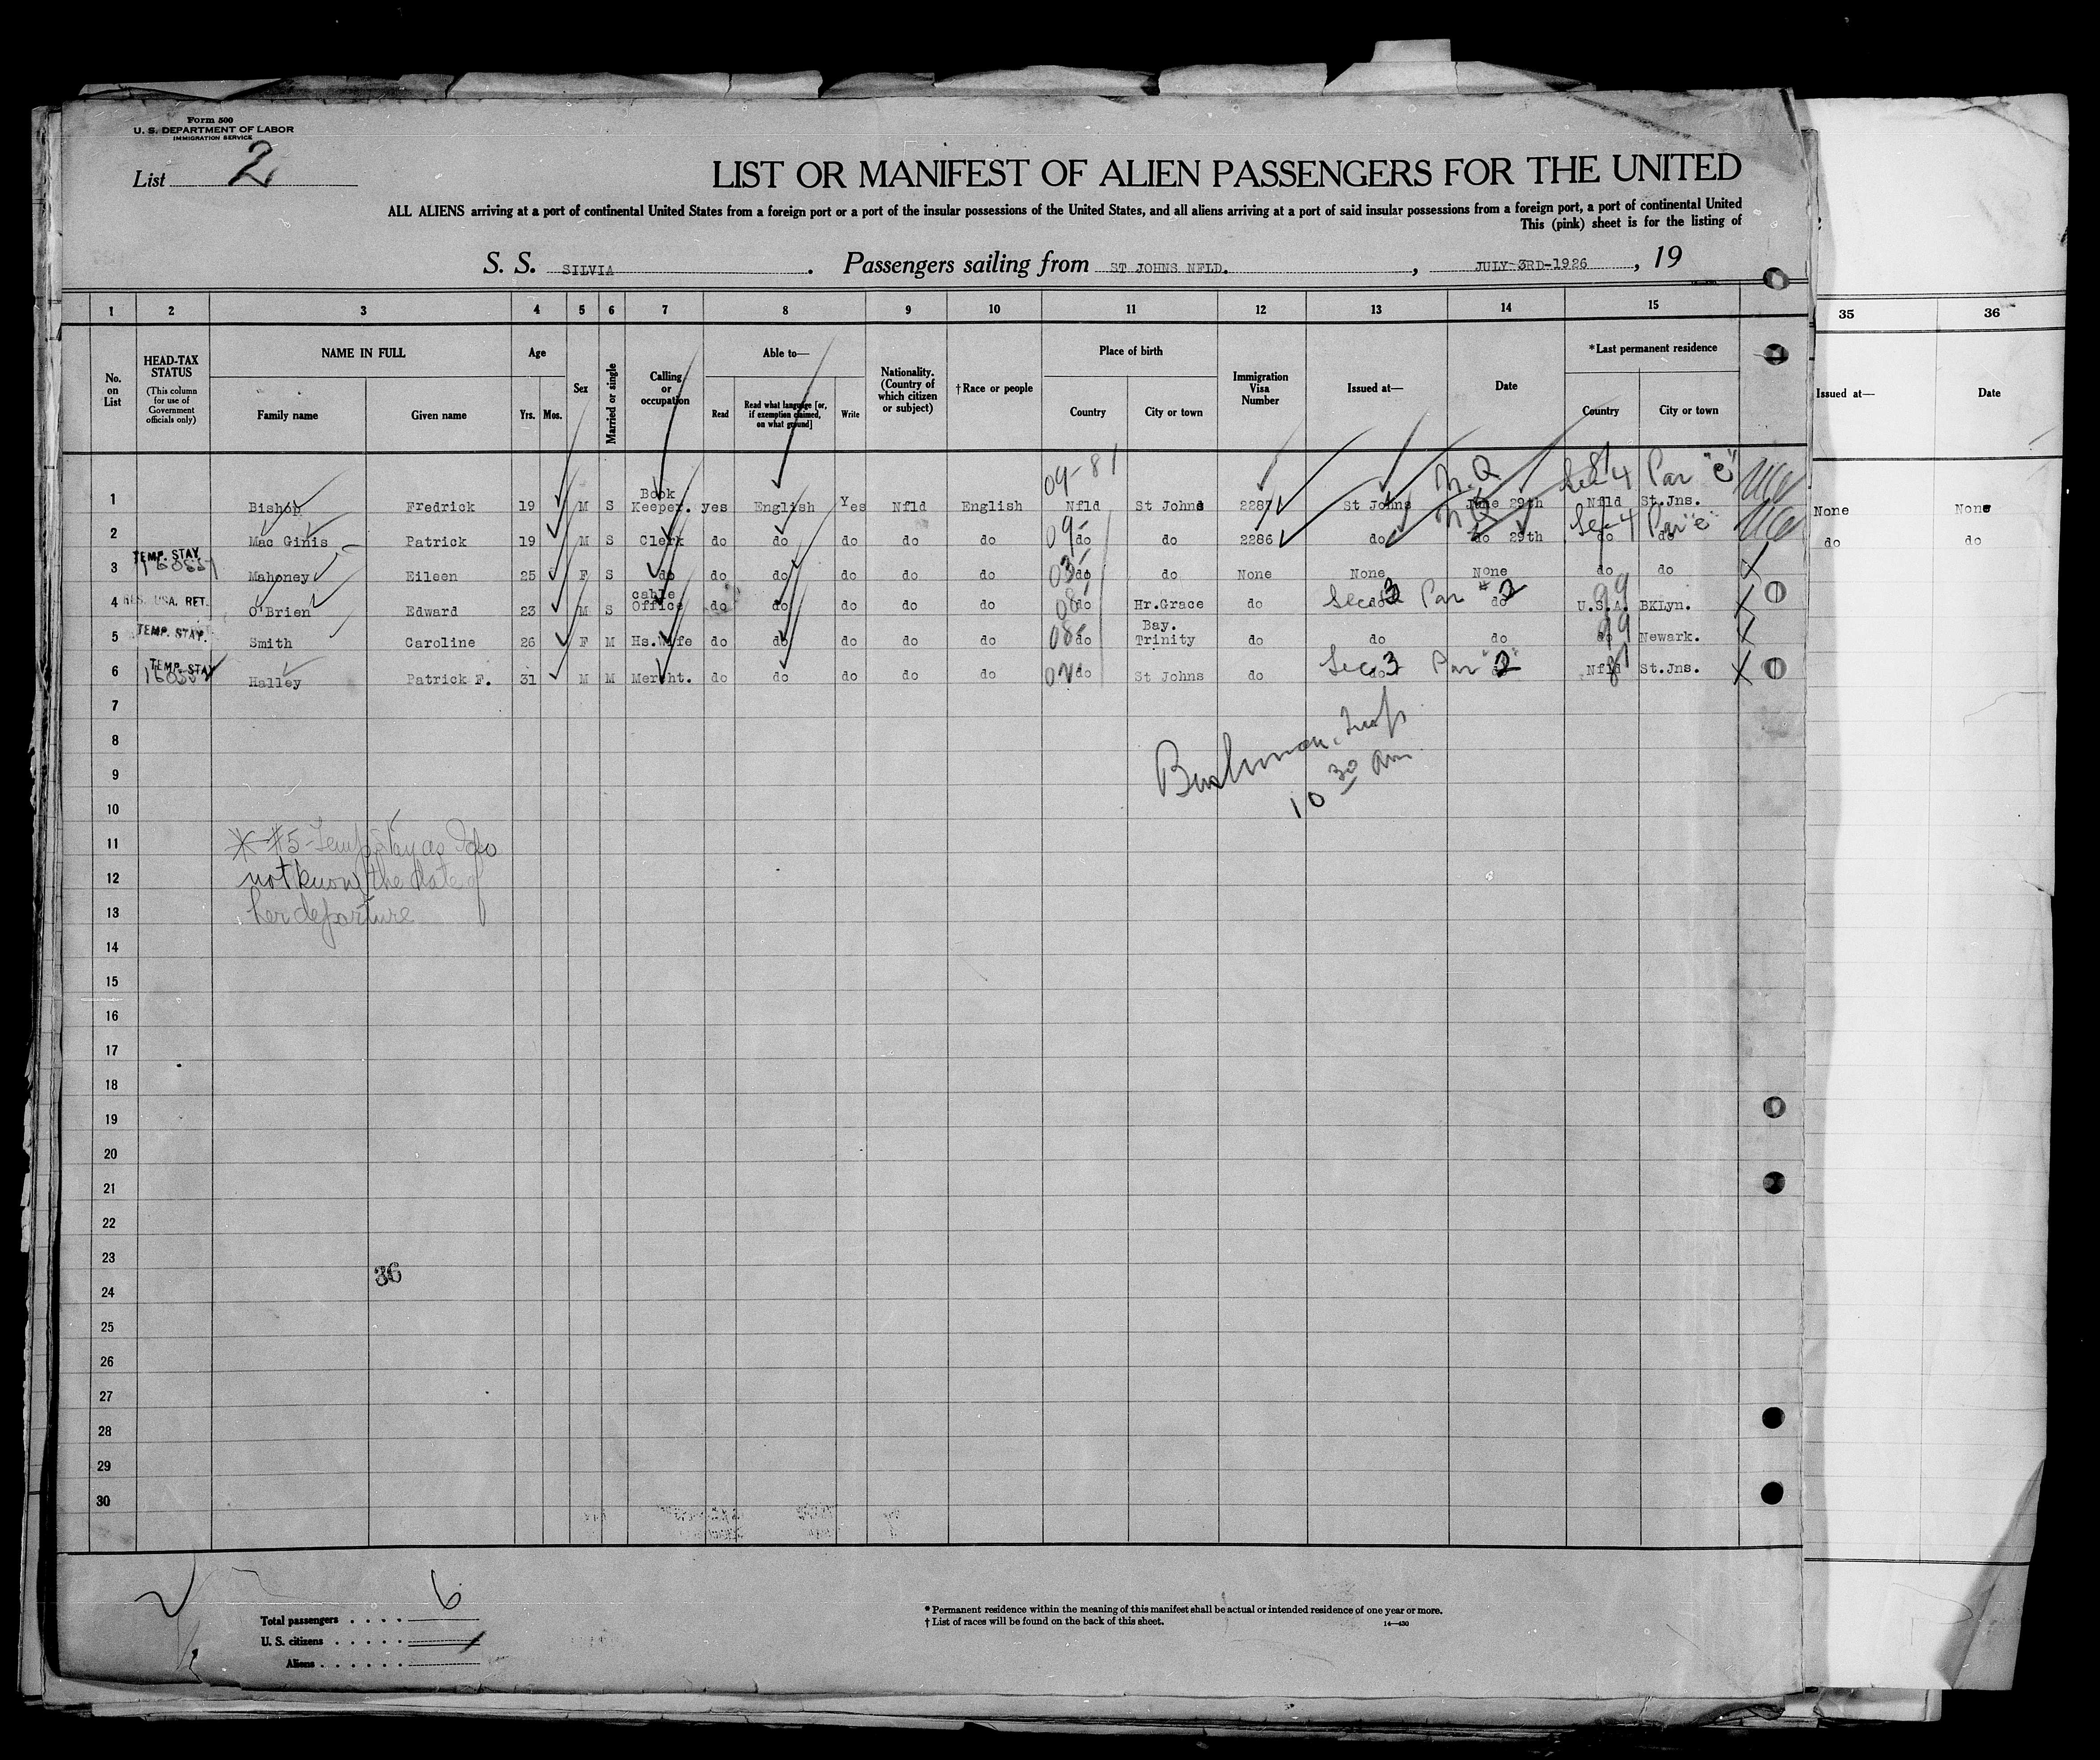 Form 500
U. S. DEPARTMENT OF LABOR
IMMIGRATION SERVICE
List 2
LIST OR MANIFEST OF ALIEN PASSENGERS FOR THE UNITED
ALL ALIENS arriving at a port of continental United States from a foreign port or a port of the insular possessions of the United States, and all aliens arriving at a port of said insular possessions from a foreign port, a port of continental United
This (pink) sheet is for the listing of
S. S. SILVIA. Passengers sailing from ST JOHNS NFLD., JULY-3RD-1926, 19
1 2 3 4 5 6 7 8 9 10 11 12 13 14 15 35 36
No. on List
HEAD-TAX STATUS
(This column for use of Government officials only)
NAME IN FULL
Family name Given name
Age
Yrs. Mos.
Sex
Married or single
Calling or occupation
Able to—
Read Read what language [or, if exemption claimed, on what ground] Write
Nationality. (Country of which citizen or subject)
†Race or people
Place of birth
Country City or town
Immigration Visa Number
Issued at—
Date
*Last permanent residence
Country City or town
Issued at— Date
09-81 N.Q Sec 4 Par "e"
1 Bishop Fredrick 19 M S Book Keeper. yes English Yes Nfld English Nfld St Johns 2287 St Johns June 29th Nfld St.Jns. None None
NQ Sec 4 Par "e"
2 Mac Ginis Patrick 19 M S Clerk do do do do do 09- do do 2286 do do 29th do do do do
TEMP. STAY
3 Mahoney Eileen 25 F S do do do do do do do do None None None do do X
4 RES. USA. RET. O'Brien Edward 23 M S cable Office do do do do do do Hr.Grace do Sec 3 Par 2 do do U.S.A. 99 BKLyn. X
5 TEMP. STAY. Smith Caroline 26 F M Hs.Wife do do do do do do Bay. Trinity do do do do 99 Newark. X
TEMP. STAY
6 Halley Patrick F. 31 M M Mercht. do do do do do do St Johns do Sec 3 Par 2 do Nfld 81 St.Jns. X
7
8
9
10 30 Am
10
11 * #5 - Temp Stay as I do
12 not know the date of
13 her departure
14
15
16
17
18
19
20
21
22
23
36
24
25
26
27
28
29
30
Total passengers . . . . 6
U. S. citizens . . . . .
Aliens . . . . . .
* Permanent residence within the meaning of this manifest shall be actual or intended residence of one year or more.
† List of races will be found on the back of this sheet. 14—430